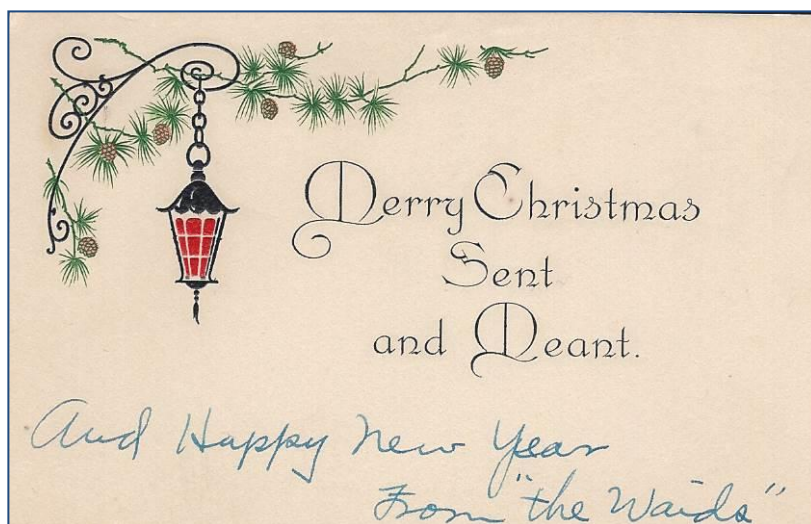 Merry Christmas
Sent
and Meant.
And Happy New Year
From "the Waids"